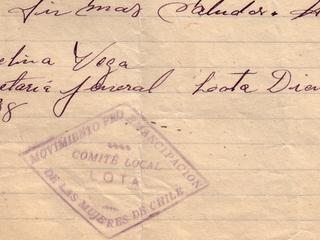 Sin mas saludos.
elina Vega
etaria General Lota Dic
38
MOVIMIENTO PRO EMANCIPACION
COMITÉ LOCAL
LOTA
DE LAS MUJERES DE CHILE